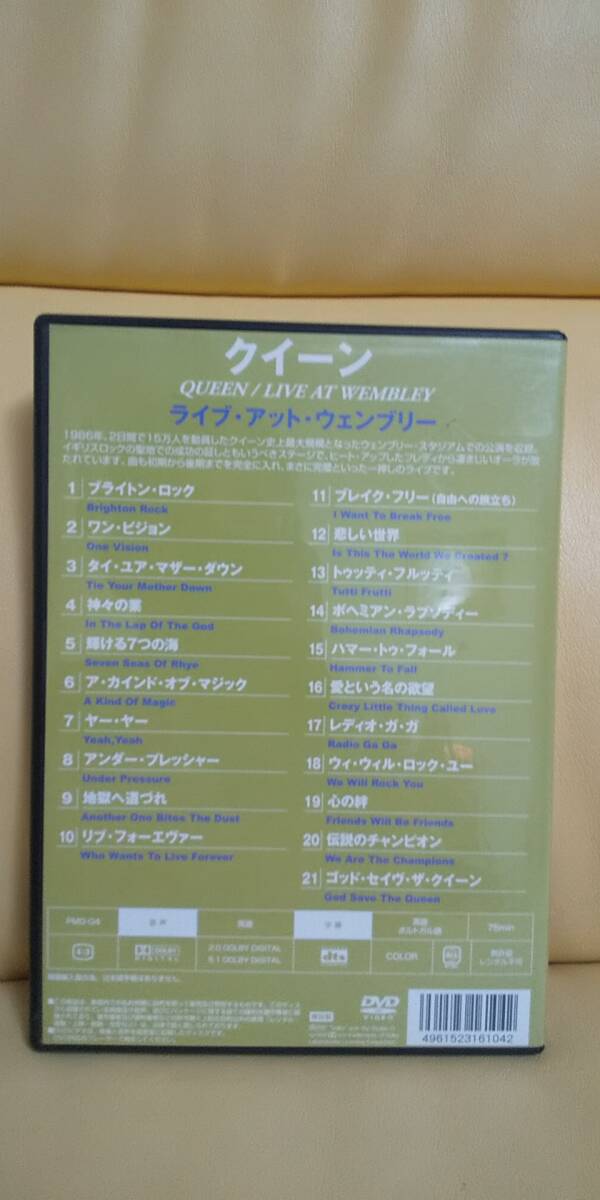 クイーン
QUEEN / LIVE AT WEMBLEY
ライブ・アット・ウェンブリー
1986年、2日間で15万人を動員したクイーン史上最大規模となったウェンブリー・スタジアムでの公演を収録。
イギリスロックの聖地での成功の証しともいうべきステージで、ヒート・アップしたフレディから凄まじいオーラが放
たれています。曲も初期から後期までを完全に入れ、まさに完璧といった一押しのライブです。
1 ブライトン・ロック
Brighton Rock
2 ワン・ビジョン
One Vision
3 タイ・ユア・マザー・ダウン
Tie Your Mother Down
4 神々の業
In The Lap Of The God
5 輝ける7つの海
Seven Seas Of Rhye
6 ア・カインド・オブ・マジック
A Kind Of Magic
7 ヤー・ヤー
Yeah,Yeah
8 アンダー・プレッシャー
Under Pressure
9 地獄へ道づれ
Another One Bites The Dust
10 リブ・フォーエヴァー
Who Wants To Live Forever
11 ブレイク・フリー(自由への旅立ち)
I Want To Break Free
12 悲しい世界
Is This The World We Created ?
13 トゥッティ・フルッティ
Tutti Frutti
14 ボヘミアン・ラプソディー
Bohemian Rhapsody
15 ハマー・トゥ・フォール
Hammer To Fall
16 愛という名の欲望
Crazy Little Thing Called Love
17 レディオ・ガ・ガ
Radio Ga Ga
18 ウィ・ウィル・ロック・ユー
We Will Rock You
19 心の絆
Friends Will Be Friends
20 伝説のチャンピオン
We Are The Champions
21 ゴッド・セイヴ・ザ・クイーン
God Save The Queen
PMG-04 音声 英語 字幕 英語 ポルトガル語 75min
4:3 DOLBY DIGITAL 2.0 DOLBY DIGITAL 5.1 DOLBY DIGITAL dts COLOR ALL 無許諾 レンタル不可
DVD VIDEO
4961523161042